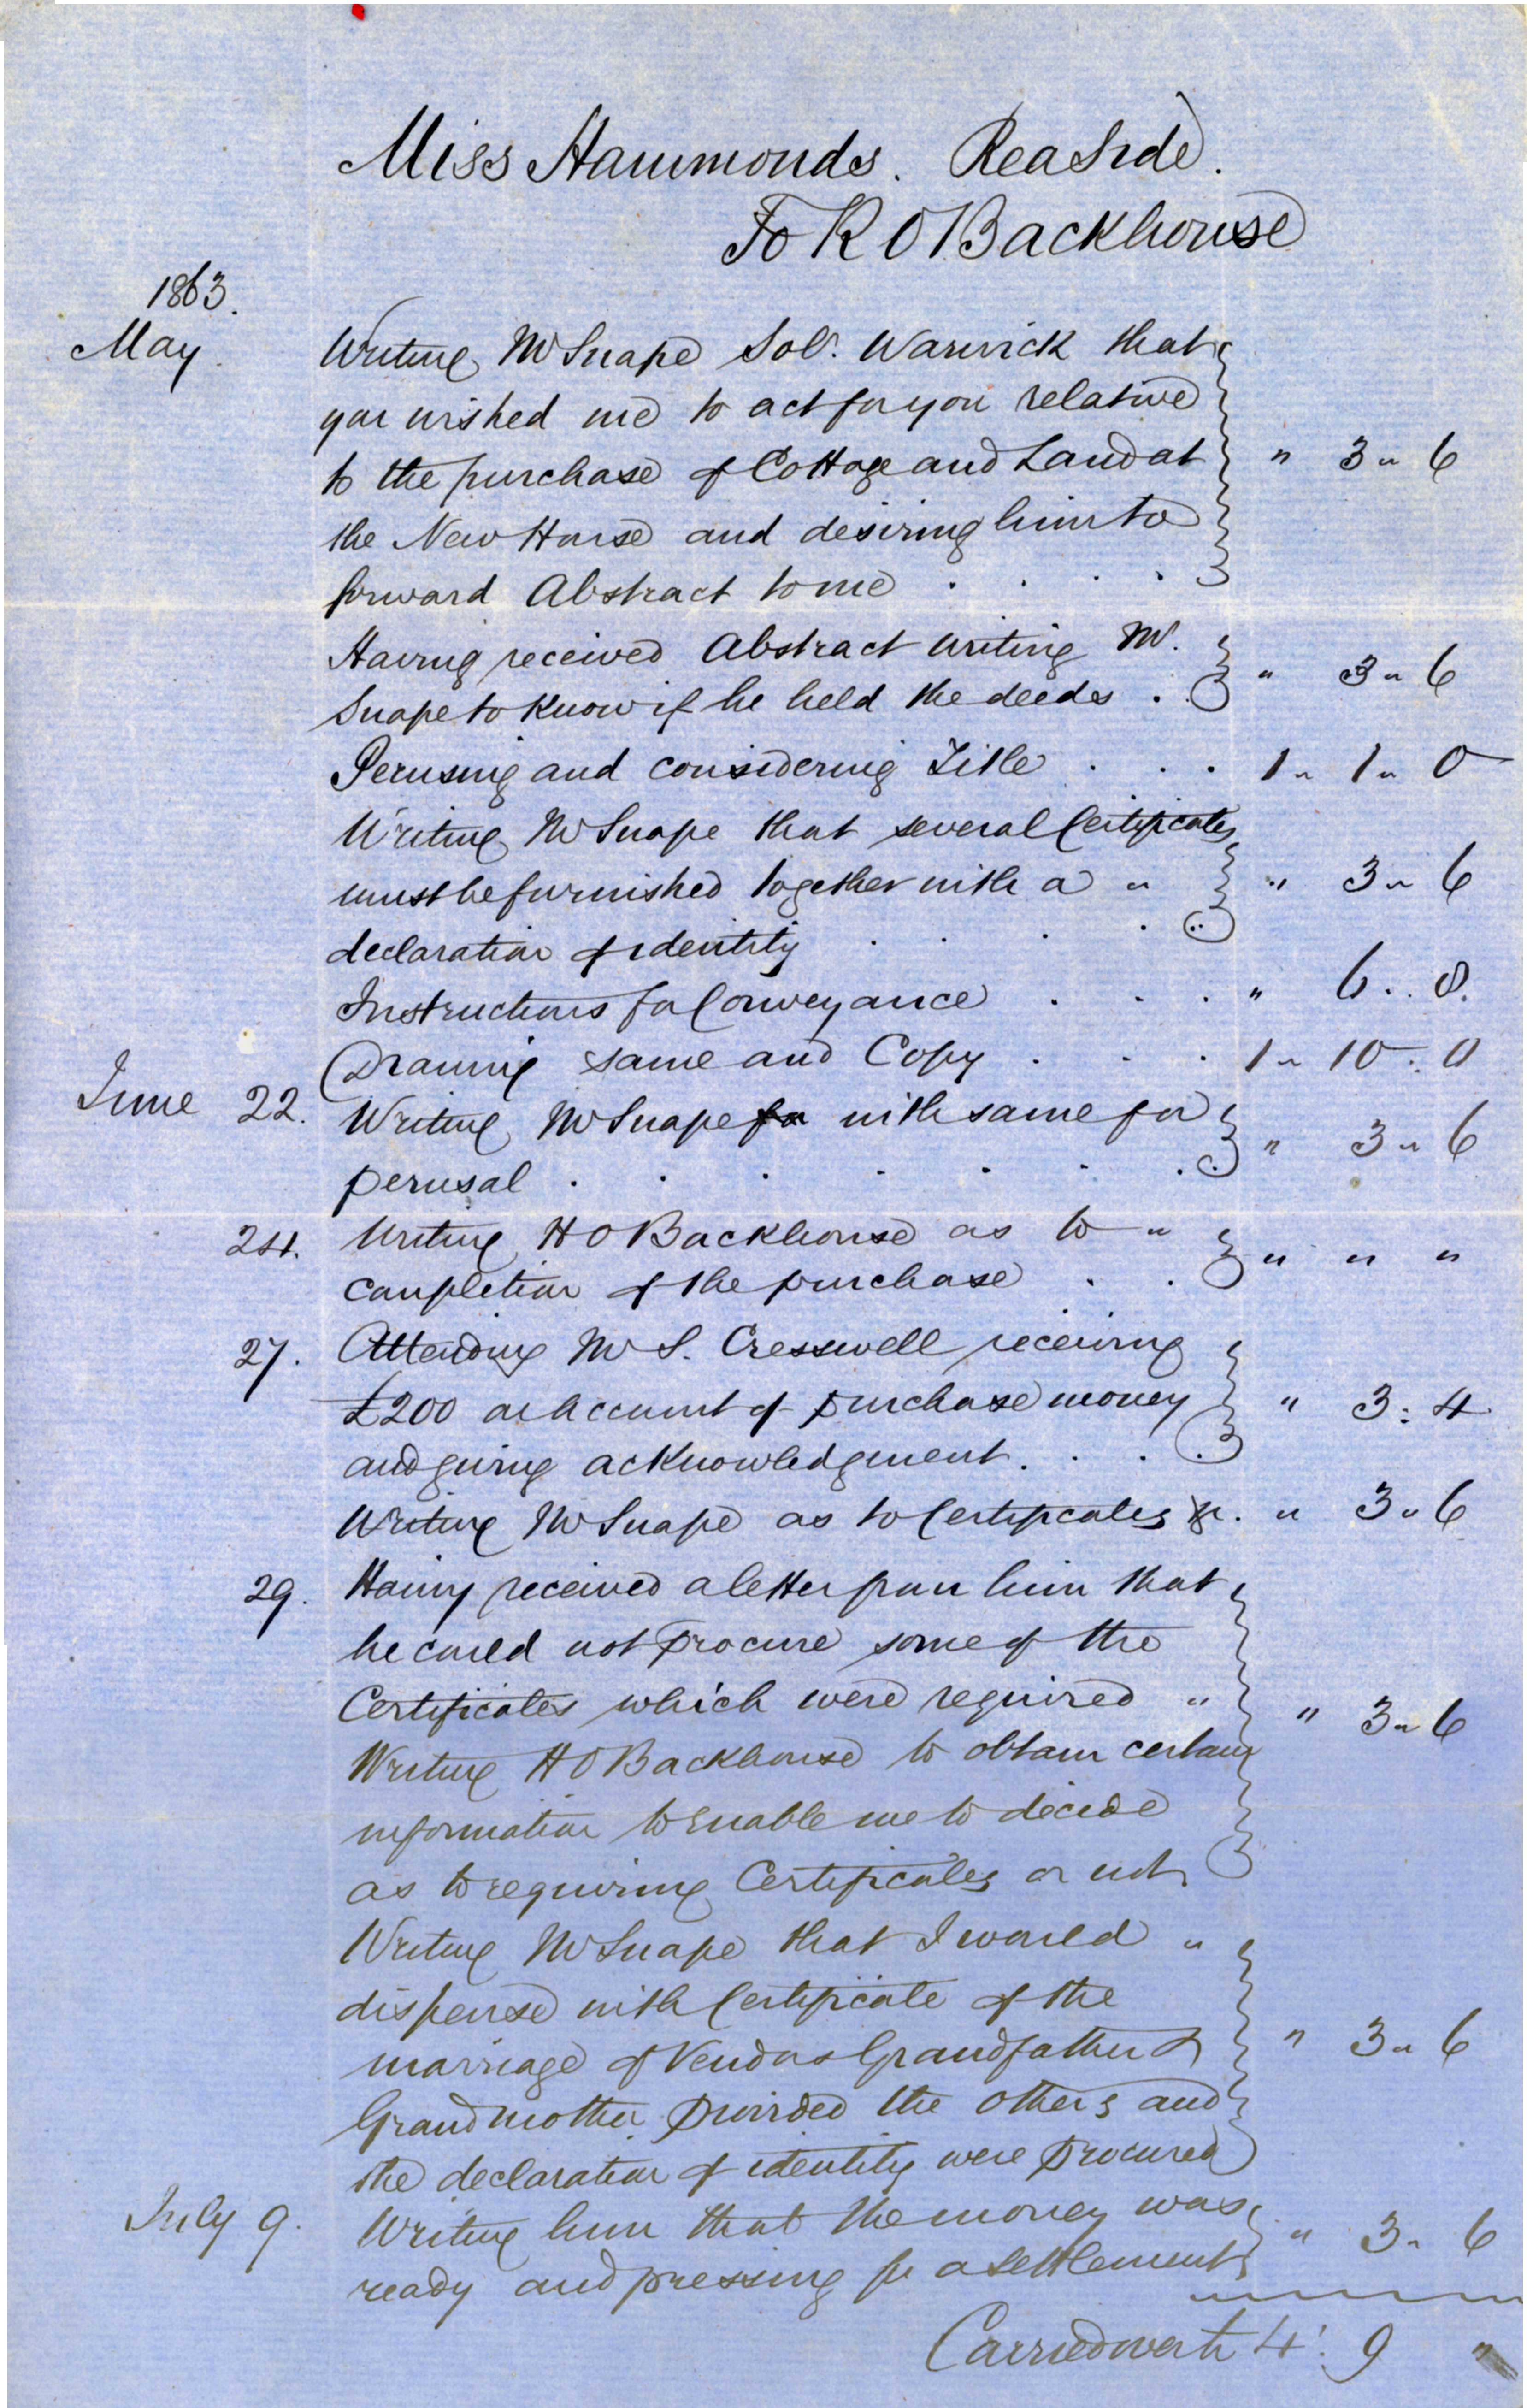 Miss Hammonds. Rea Side.
To R O Backhouse
1863.
May. Writing Mr Snape Solr. Warwick that
you wished me to act for you relative
to the purchase of Cottage and Land at " 3 " 6
the New House and desiring him to
forward Abstract to me . . . .
Having received Abstract writing Mr.
Snape to know if he held the deeds . . " 3 " 6
Perusing and considering Title . . . 1 " 1 " 0
Writing Mr Snape that several Certificates
must be furnished together with a " " 3 " 6
declaration of identity . . . .
Instructions for Conveyance . . . " 6 . . 8.
Drawing same and Copy . . . 1 " 10 : 0
June 22. Writing Mr Snape for with same for
perusal . . . . . . " 3 " 6
24. Writing H O Backhouse as to "
completion of the purchase . . " " "
27. Attending Mr S. Cresswell receiving
£200 on account of purchase money " 3 : 4
and giving acknowledgment . . .
Writing Mr Snape as to Certificates &c. " 3 " 6
29. Having received a letter from him that
he could not procure some of the
Certificates which were required " " 3 " 6
Writing H O Backhouse to obtain certain
information to enable me to decide
as to requiring Certificates or not
Writing Mr Snape that I would "
dispense with Certificate of the
marriage of Vendors Grandfather & " 3 " 6
Grandmother provided the others and
the declaration of identity were procured
July 9. Writing him that the money was
ready and pressing for a settlement " 3 " 6
Carried over £ 4 : 9 "